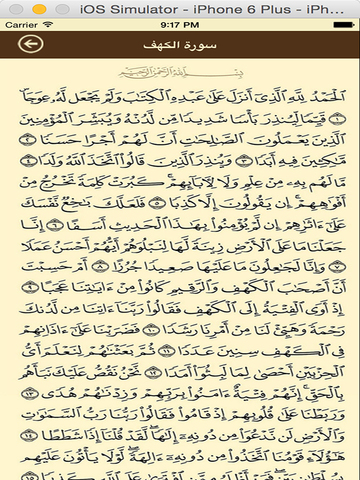 iOS Simulator - iPhone 6 Plus - iPh...
Carrier 9:17 PM
سورة الكهف
بِسْمِ اللَّهِ الرَّحْمَٰنِ الرَّحِيمِ
الْحَمْدُ لِلَّهِ الَّذِي أَنزَلَ عَلَىٰ عَبْدِهِ الْكِتَابَ وَلَمْ يَجْعَل لَّهُ عِوَجًا
١ قَيِّمًا لِّيُنذِرَ بَأْسًا شَدِيدًا مِّن لَّدُنْهُ وَيُبَشِّرَ الْمُؤْمِنِينَ
الَّذِينَ يَعْمَلُونَ الصَّالِحَاتِ أَنَّ لَهُمْ أَجْرًا حَسَنًا ٢
مَّاكِثِينَ فِيهِ أَبَدًا ٣ وَيُنذِرَ الَّذِينَ قَالُوا اتَّخَذَ اللَّهُ وَلَدًا ٤
مَّا لَهُم بِهِ مِنْ عِلْمٍ وَلَا لِآبَائِهِمْ كَبُرَتْ كَلِمَةً تَخْرُجُ مِنْ
أَفْوَاهِهِمْ إِن يَقُولُونَ إِلَّا كَذِبًا ٥ فَلَعَلَّكَ بَاخِعٌ نَّفْسَكَ
عَلَىٰ آثَارِهِمْ إِن لَّمْ يُؤْمِنُوا بِهَٰذَا الْحَدِيثِ أَسَفًا ٦ إِنَّا
جَعَلْنَا مَا عَلَى الْأَرْضِ زِينَةً لَّهَا لِنَبْلُوَهُمْ أَيُّهُمْ أَحْسَنُ عَمَلًا
٧ وَإِنَّا لَجَاعِلُونَ مَا عَلَيْهَا صَعِيدًا جُرُزًا ٨ أَمْ حَسِبْتَ
أَنَّ أَصْحَابَ الْكَهْفِ وَالرَّقِيمِ كَانُوا مِنْ آيَاتِنَا عَجَبًا ٩
إِذْ أَوَى الْفِتْيَةُ إِلَى الْكَهْفِ فَقَالُوا رَبَّنَا آتِنَا مِن لَّدُنكَ
رَحْمَةً وَهَيِّئْ لَنَا مِنْ أَمْرِنَا رَشَدًا ١٠ فَضَرَبْنَا عَلَىٰ آذَانِهِمْ
فِي الْكَهْفِ سِنِينَ عَدَدًا ١١ ثُمَّ بَعَثْنَاهُمْ لِنَعْلَمَ أَيُّ
الْحِزْبَيْنِ أَحْصَىٰ لِمَا لَبِثُوا أَمَدًا ١٢ نَّحْنُ نَقُصُّ عَلَيْكَ نَبَأَهُم
بِالْحَقِّ إِنَّهُمْ فِتْيَةٌ آمَنُوا بِرَبِّهِمْ وَزِدْنَاهُمْ هُدًى ١٣
وَرَبَطْنَا عَلَىٰ قُلُوبِهِمْ إِذْ قَامُوا فَقَالُوا رَبُّنَا رَبُّ السَّمَاوَاتِ
وَالْأَرْضِ لَن نَّدْعُوَ مِن دُونِهِ إِلَٰهًا لَّقَدْ قُلْنَا إِذًا شَطَطًا
١٤ هَٰؤُلَاءِ قَوْمُنَا اتَّخَذُوا مِن دُونِهِ آلِهَةً لَّوْلَا يَأْتُونَ عَلَيْهِم
بِسُلْطَانٍ بَيِّنٍ فَمَنْ أَظْلَمُ مِمَّنِ افْتَرَىٰ عَلَى اللَّهِ كَذِبًا ١٥